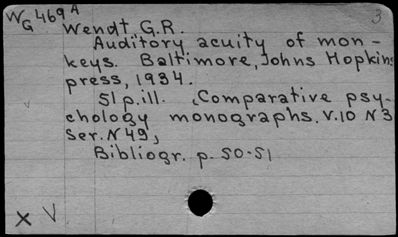 WG 469 A
3
Wendt, G.R.
Auditory acuity of mon-
keys. Baltimore, Johns Hopkins
press, 1934.
51 p. ill. (Comparative psy-
chology monographs. V.10 N3
Ser. N 49)
Bibliogr. p. 50-51
X V